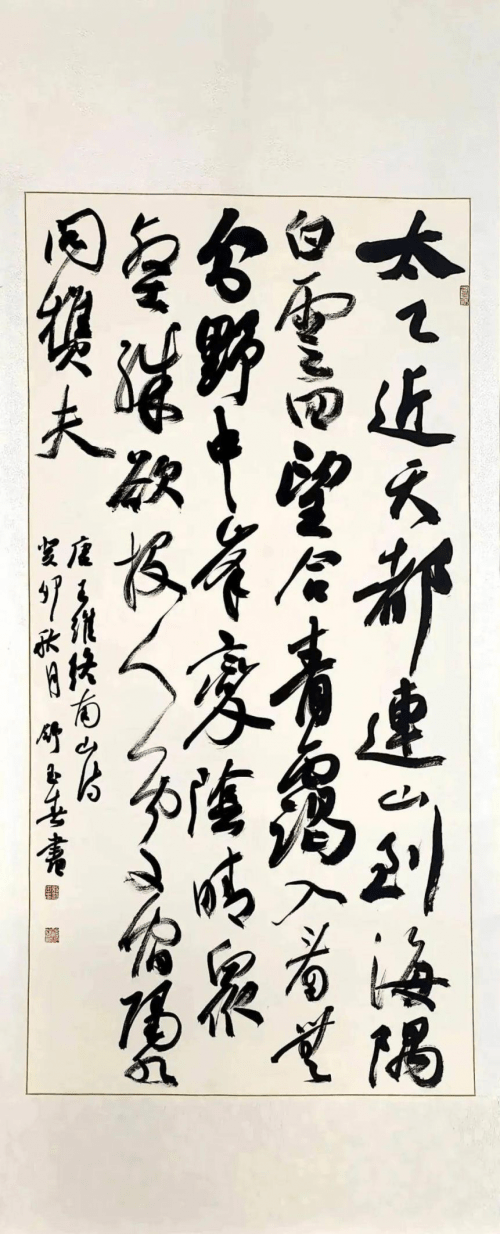 太乙近天都連山到海隅
白雲回望合青靄入看無
分野中峯變陰晴眾
壑殊欲投人處宿隔水
問樵夫
唐王維終南山詩
癸卯秋月 舒玉春書